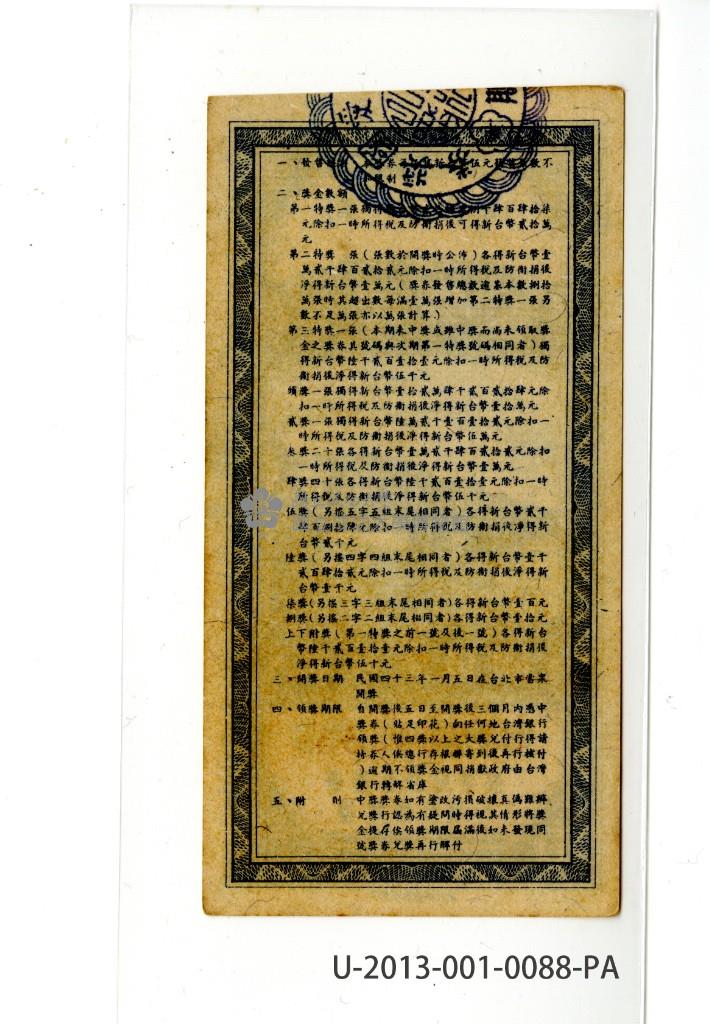 一、發售
伍元
數不
限制
二、獎金數額
第一特獎一張獨得
千肆百肆拾柒
元除扣一時所得稅及防衛捐後可得新台幣貳拾萬
元
第二特獎　張（張數於開獎時公佈）各得新台幣壹
萬貳千肆百貳拾貳元除扣一時所得稅及防衛捐後
淨得新台幣壹萬元（獎券發售總數逾基本數捌拾
萬張時其超出數每滿壹萬張增加第二特獎一張另
數不足萬張亦以萬張計算）
第三特獎一張（本期未中獎或雖中獎而尚未領取獎
金之獎券其號碼與次期第一特獎號碼相同者）獨
得新台幣陸千貳百壹拾壹元除扣一時所得稅及防
衛捐後淨得新台幣伍千元
頭獎一張獨得新台幣壹拾貳萬肆千貳百貳拾肆元除
扣一時所得稅及防衛捐後淨得新台幣壹拾萬元
貳獎一張獨得新台幣陸萬貳千壹百壹拾貳元除扣一
時所得稅及防衛捐後淨得新台幣伍萬元
叁獎二十張各得新台幣壹萬貳千肆百貳拾貳元除扣
一時所得稅及防衛捐後淨得新台幣壹萬元
肆獎四十張各得新台幣陸千貳百壹拾壹元除扣一時
所得稅及防衛捐後淨得新台幣伍千元
伍獎（另搖五字五組末尾相同者）各得新台幣貳千
肆百捌拾陸元除扣一時所得稅及防衛捐後淨得新
台幣貳千元
陸獎（另搖四字四組末尾相同者）各得新台幣壹千
貳百肆拾貳元除扣一時所得稅及防衛捐後淨得新
台幣壹千元
柒獎(另搖三字三組末尾相同者)各得新台幣壹百元
捌獎(另搖二字二組末尾相同者)各得新台幣壹拾元
上下附獎（第一特獎之前一號及後一號）各得新台
幣陸千貳百壹拾壹元除扣一時所得稅及防衛捐後
淨得新台幣伍千元
三、開獎日期　民國四十三年一月五日在台北市當眾
開獎
四、領獎期限　自開獎後五日至開獎後三個月內憑中
獎券（貼足印花）向任何地台灣銀行
領獎（惟四獎以上之大獎兌付行得請
持券人俟總行存根聯寄到後再行核付
）逾期不領獎金視同捐獻政府由台灣
銀行轉解省庫
五、附　則　中獎獎券如有塗改污損破壞真偽難辨
兌獎行認為有疑問時得視其情形將獎
金提存俟領獎期限屆滿後如未發現同
號獎券兌獎再行解付
U-2013-001-0088-PA